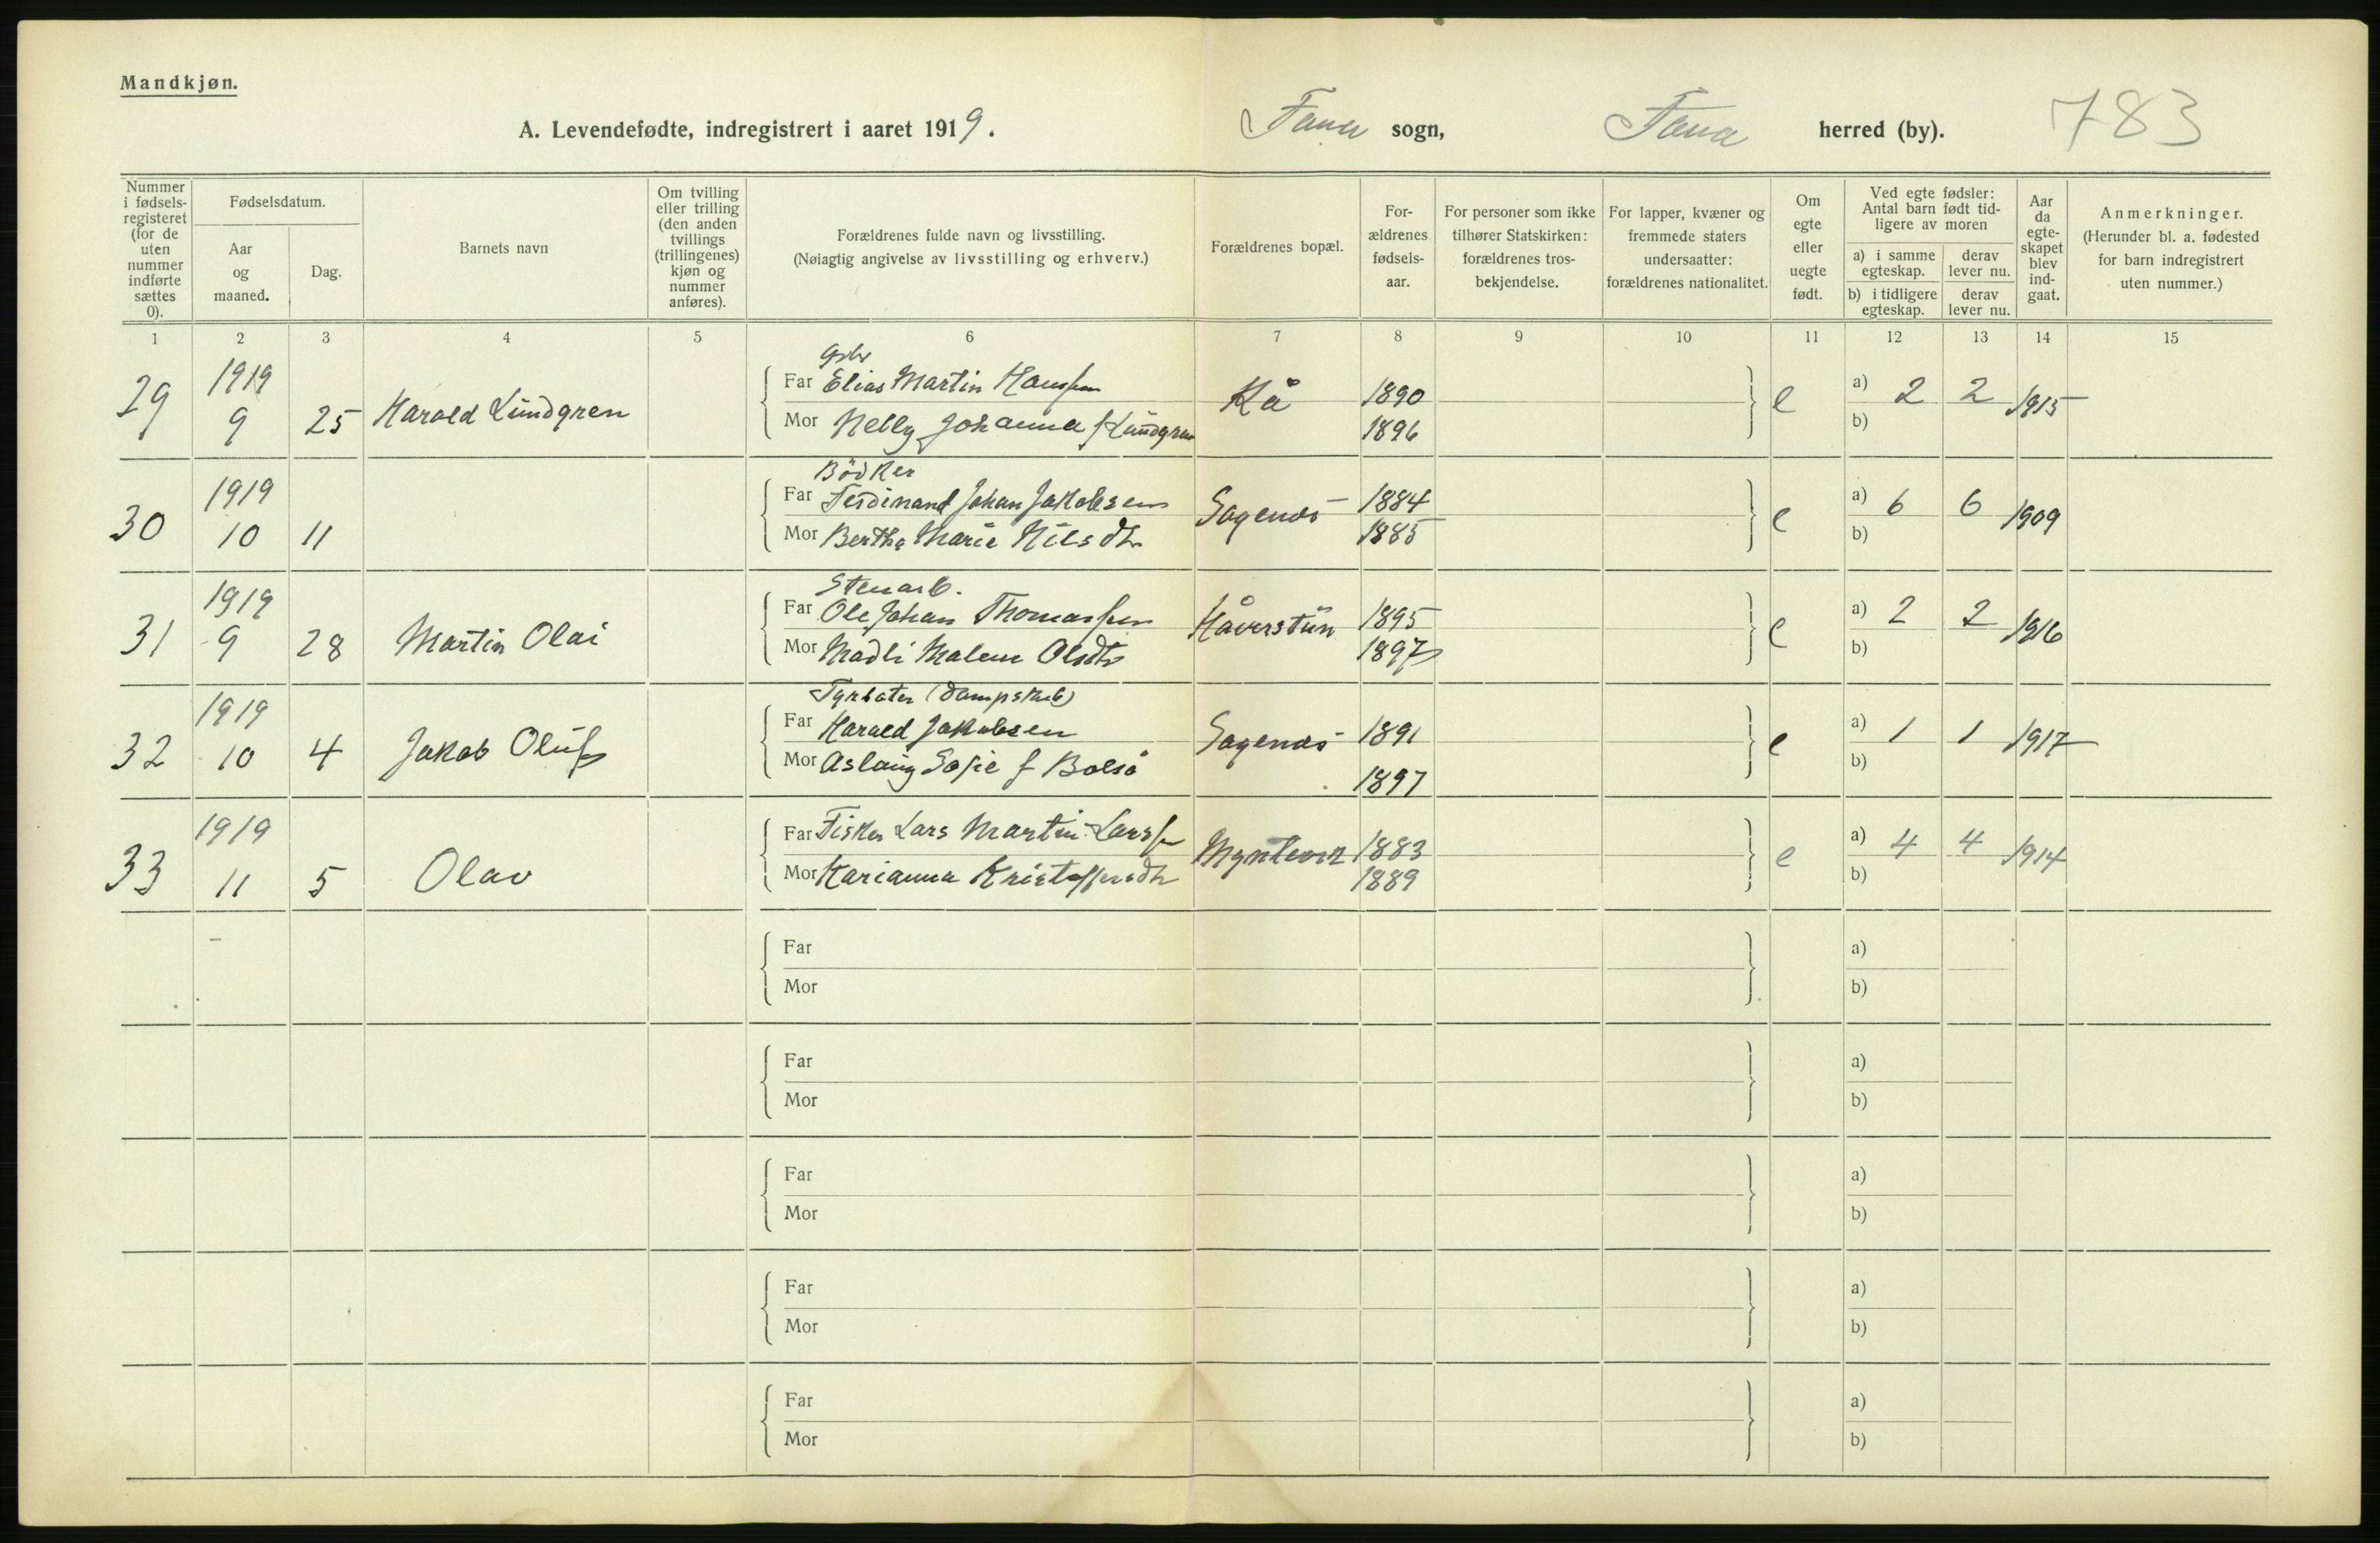 Mandkjøn.
A. Levendefødte, indregistrert i aaret 1919. Fana sogn, Fana herred (by). 783
Nummer i fødsels-registeret (for de uten nummer indførte sættes 0).
Fødselsdatum.
Aar og maaned.
Dag.
Barnets navn
Om tvilling eller trilling (den anden tvillings (trillingenes) kjøn og nummer anføres).
Forældrenes fulde navn og livsstilling.
(Nøiagtig angivelse av livsstilling og erhverv.)
Forældrenes bopæl.
For-ældrenes fødsels-aar.
For personer som ikke tilhører Statskirken: forældrenes tros-bekjendelse.
For lapper, kvæner og fremmede staters undersaatter: forældrenes nationalitet.
Om egte eller uegte født.
Ved egte fødsler: Antal barn født tid-ligere av moren
a) i samme egteskap. derav lever nu.
b) i tidligere egteskap. derav lever nu.
Aar da egte-skapet blev ind-gaat.
Anmerkninger.
(Herunder bl. a. fødested for barn indregistrert uten nummer.)
1 2 3 4 5 6 7 8 9 10 11 12 13 14 15
29 1919 9 25 Harald Lundgren
Far Elias Martin Hanssen Kå 1890 e a) 2 2 1915
Mor Nelly Johanna f Lundgren 1896 b)
Bödker
30 1919 10 11
Far Ferdinand Johan Jakobsen Sagenes 1884 e a) 6 6 1909
Mor Bertha Marie Nilsdtr 1885 b)
Stenarb.
31 1919 9 28 Martin Olai
Far Ole Johan Thomassen 1895 e a) 2 2 1916
Mor Madli Malene Olsdtr 1897 b)
Fyrböter (Dampskib)
32 1919 10 4 Jakob Oluf
Far Harald Jakobsen Sagenes 1891 e a) 1 1 1917
Mor Aslaug Sofie f 1897 b)
33 1919 11 5 Olav
Far Fisker Lars Martin Larss 1883 e a) 4 4 1914
Mor Marianna Kristoffersdtr 1889 b)
Far a)
Mor b)
Far a)
Mor b)
Far a)
Mor b)
Far a)
Mor b)
Far a)
Mor b)